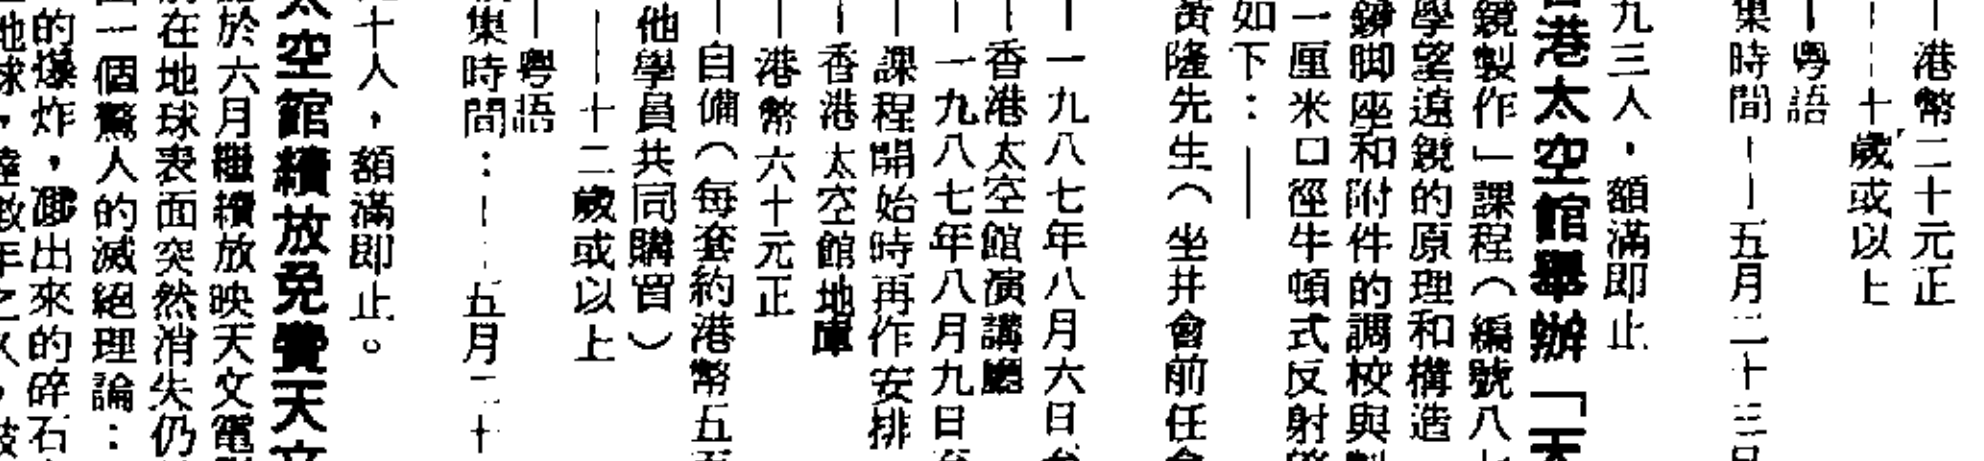 港幣二十元正
十歲或以上
粵語
集時間——五月二十三日
九三人，額滿即止
香港太空館舉辦「天
鏡製作」課程（編號八七
學望遠鏡的原理和構造
鏡脚座和附件的調校與製
一厘米口徑牛頓式反射望
如下：——
黃隆先生（坐井會前任會
一九八七年八月六日至
香港太空館演講廳
一九八七年八月九日至
課程開始時再作安排
香港太空館地庫
港幣六十元正
自備（每套約港幣五百
他學員共同購買）
十二歲或以上
粵語
集時間：——五月二十
十人，額滿即止。
太空館續放免費天文
於六月繼續放映天文電影
在地球表面突然消失仍
一個驚人的滅絕理論：
的爆炸，濺出來的碎石
地球，達數年之久，被